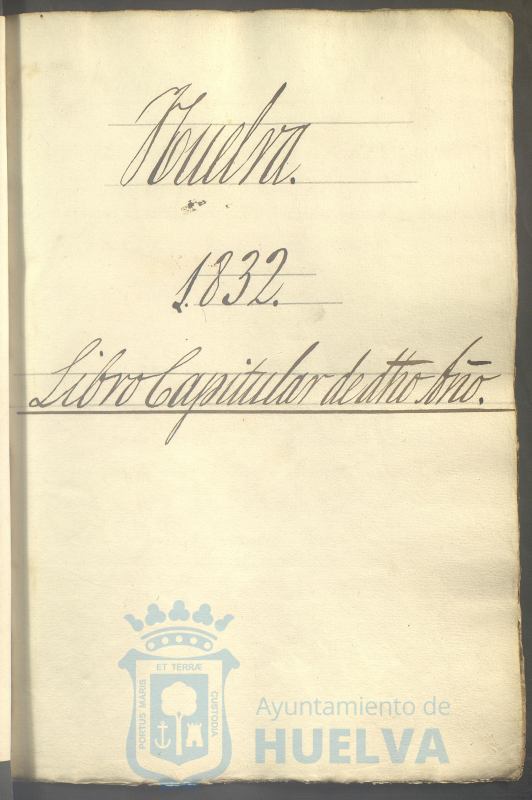 Huelva.
1832.
Libro Capitular de dho Año.
ET TERRÆ
PORTUS MARIS
CUSTODIA
Ayuntamiento de
HUELVA